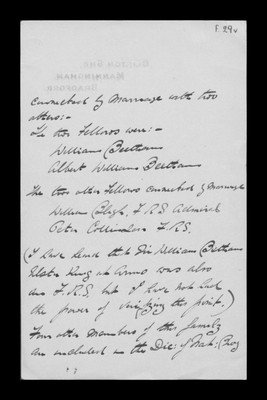 F. 29v
connected by Marriage with two
others:-
The two Fellows were:-
William Betham
Albert William Beetham
The two other Fellows connected by Marriage
William Bligh F.R.S Admiral
Peter Collinson F.R.S.
(I have heard that Sir William Betham
Ulster King at Arms was also
an F.R.S. but I have not had
the power of verifying this point)
Four other members of this family
are included in the Dic: of Nat: Biog